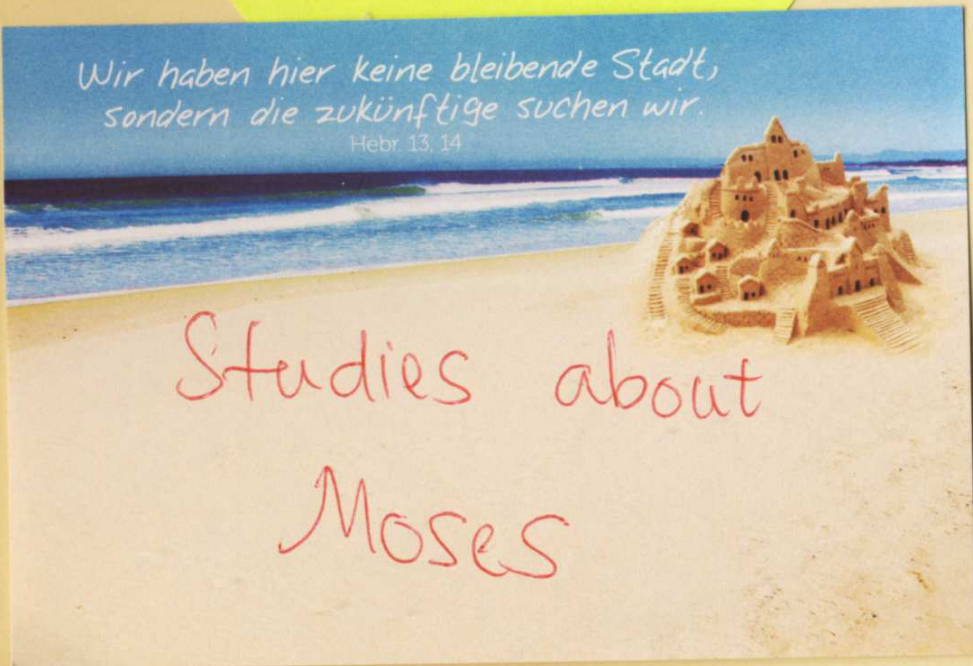 Wir haben hier keine bleibende Stadt,
sondern die zukünftige suchen wir.
Hebr. 13, 14
Studies about
Moses